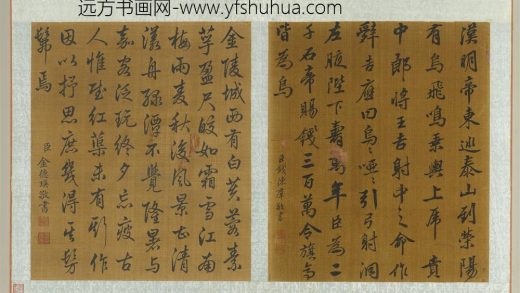 远方书画网-www.yfshuhua.com
漢明帝東巡泰山到滎陽
有烏飛鳴乘輿上虎賁
中郎將王吉射中之命作
辭吉應曰烏〃啞〃引弓射洞
左腋陛下壽萬年臣為二
千石帝賜錢三百萬令旗亭
皆為烏
臣錢陳羣敬書
金陵城西有白芙蓉素
萼盈尺皎如霜雪江南
梅雨麦秋後風景甚清
漾舟綠潭不覺隆暑與
嘉客泛玩終夕忘疲古
人惟賦紅蕖未有斯作
因以抒思庶幾得其髣
髴焉
臣金德瑛敬書